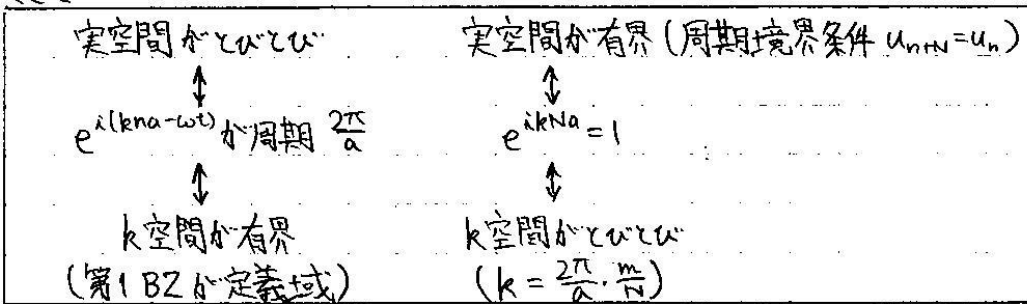 実空間がとびとび
↕
e^{i(kna-ωt)}が周期 2π/a
↕
k空間が有界
(第1 BZが定義域)
実空間が有界(周期境界条件 u_{n+N}=u_n)
↕
e^{ikNa}=1
↕
k空間がとびとび
(k = 2π/a・m/N)